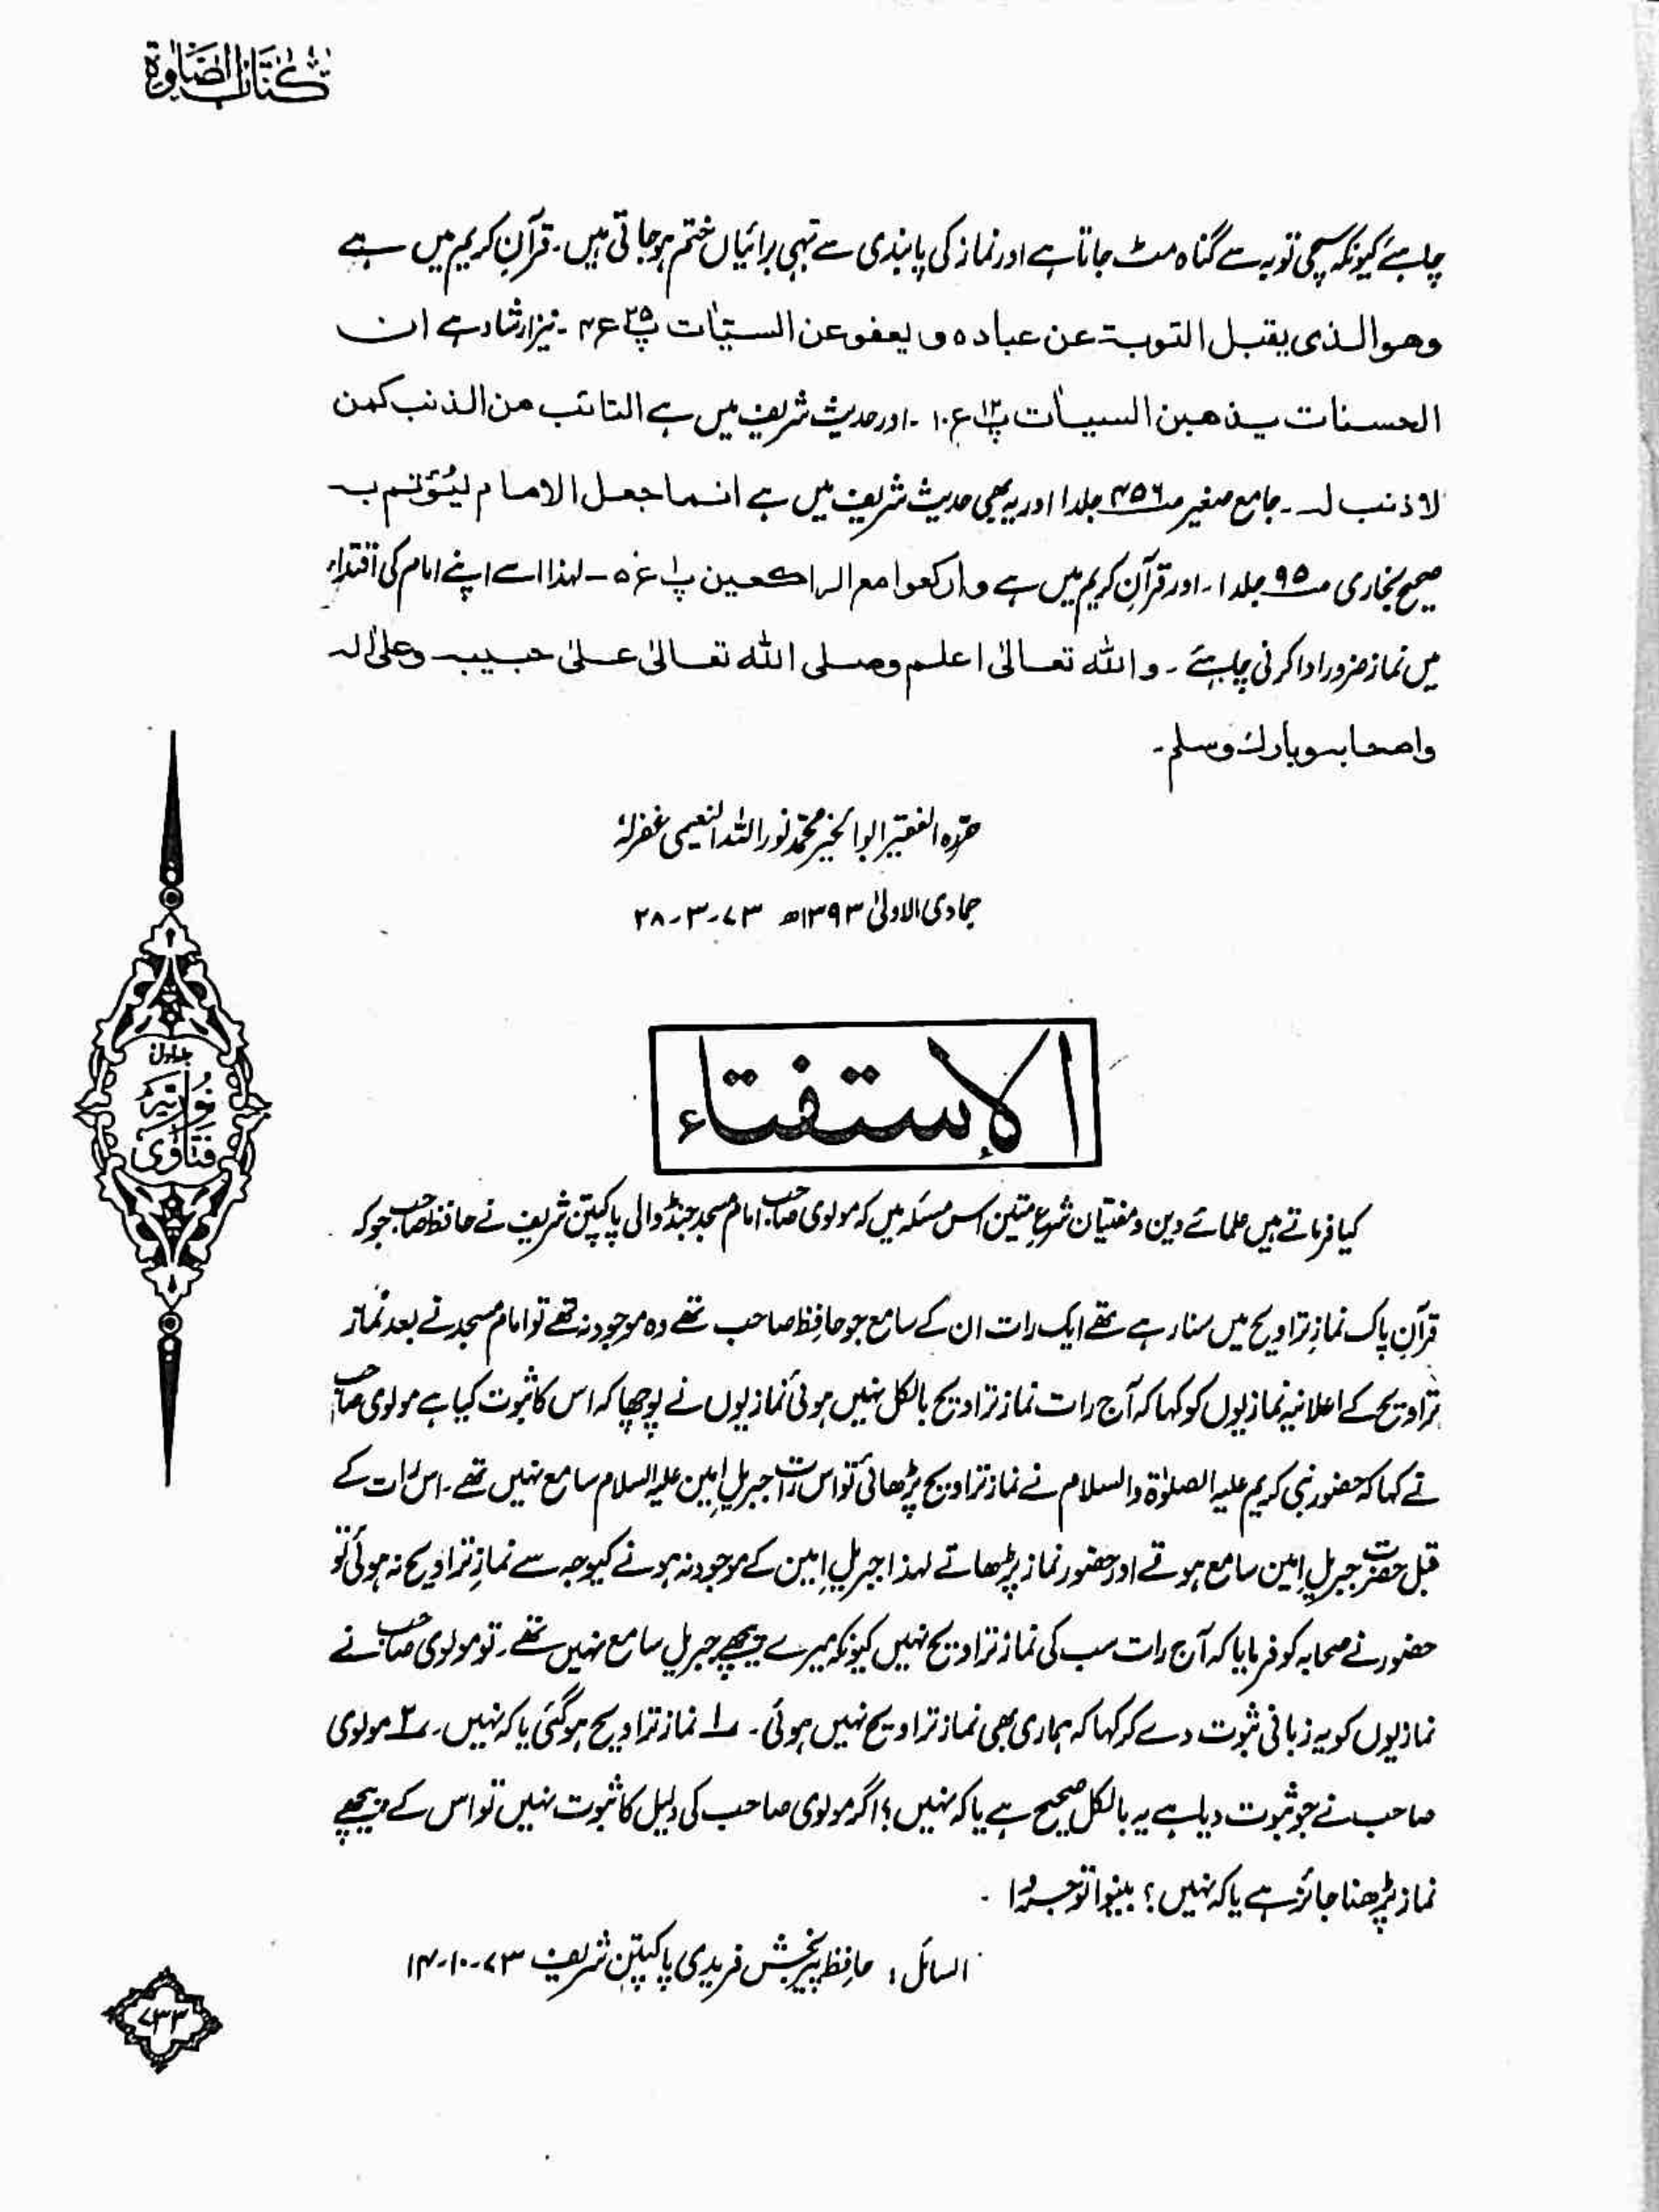 كتاب الصلوة
چاہئے کیونکہ سچی توبہ سے گناہ مٹ جاتا ہے اور نماز کی پابندی سے بھی برائیاں ختم ہو جاتی ہیں۔ قرآنِ کریم میں ہے
وهو الذى يقبل التوبة عن عباده و يعفو عن السيّاٰت پ۲۵ ع۴ ۔ نیز ارشاد ہے ان
الحسنات يذهبن السياٰت پ۱۲ ع۱۰ ۔ اور حدیث شریف میں ہے التائب من الذنب كمن
لا ذنب له ۔ جامع صغیر ص۴۵۶ جلد۱ اور یہ بھی حدیث شریف میں ہے انما جعل الامام ليُؤتم به
صحیح بخاری ص۹۵ جلد۱ ۔ اور قرآنِ کریم میں ہے واركعوا مع الراكعين پ۱ ع۵ ـ لہذا اسے اپنے امام کی اقتداء
میں نماز ضرور ادا کرنی چاہئے ۔ و الله تعالىٰ اعلم وصلى الله تعالىٰ علىٰ حبيبه وعلىٰ اٰله
واصحابه وبارك وسلم ۔
حررہ الفقیر ابوالخیر محمد نور اللہ النعیمی غفرلہٗ
جمادی الاولیٰ ۱۳۹۳ھ ۷۳-۳-۲۸
الإستفتاء
کیا فرماتے ہیں علمائے دین و مفتیان شرعِ متین اس مسئلہ میں کہ مولوی صاحب امام مسجد جنڈ والی پاکپتن شریف نے حافظ صاحب جو کہ
قرآنِ پاک نمازِ تراویح میں سنا رہے تھے ایک رات ان کے سامع جو حافظ صاحب تھے وہ موجود نہ تھے تو امام مسجد نے بعد نماز
تراویح کے اعلانیہ نمازیوں کو کہا کہ آج رات نماز تراویح بالکل نہیں ہوئی نمازیوں نے پوچھا کہ اس کا ثبوت کیا ہے مولوی صاحب
نے کہا کہ حضور نبی کریم علیہ الصلوٰۃ والسلام نے نماز تراویح پڑھائی تو اس رات جبریلِ امین علیہ السلام سامع نہیں تھے ۔ اس رات کے
قبل حضرت جبریلِ امین سامع ہوتے اور حضور نماز پڑھاتے لہذا جبریلِ امین کے موجود نہ ہونے کیوجہ سے نمازِ تراویح نہ ہوئی تو
حضور نے صحابہ کو فرمایا کہ آج رات سب کی نماز تراویح نہیں کیونکہ میرے پیچھے جبریل سامع نہیں تھے ۔ تو مولوی صاحب نے
نمازیوں کو یہ زبانی ثبوت دے کر کہا کہ ہماری بھی نماز تراویح نہیں ہوئی ۔ ۱ نماز تراویح ہو گئی یا کہ نہیں ۔ ۲ مولوی
صاحب نے جو ثبوت دیا ہے یہ بالکل صحیح ہے یا کہ نہیں ؟ اگر مولوی صاحب کی دلیل کا ثبوت نہیں تو اس کے پیچھے
نماز پڑھنا جائز ہے یا کہ نہیں ؟ بینوا توجروا ۔
السائل : حافظ پیر بخش فریدی پاکپتن شریف ۷۳-۱۰-۱۴
جلد اول
نوریہ
فتاوی
۷۳۳